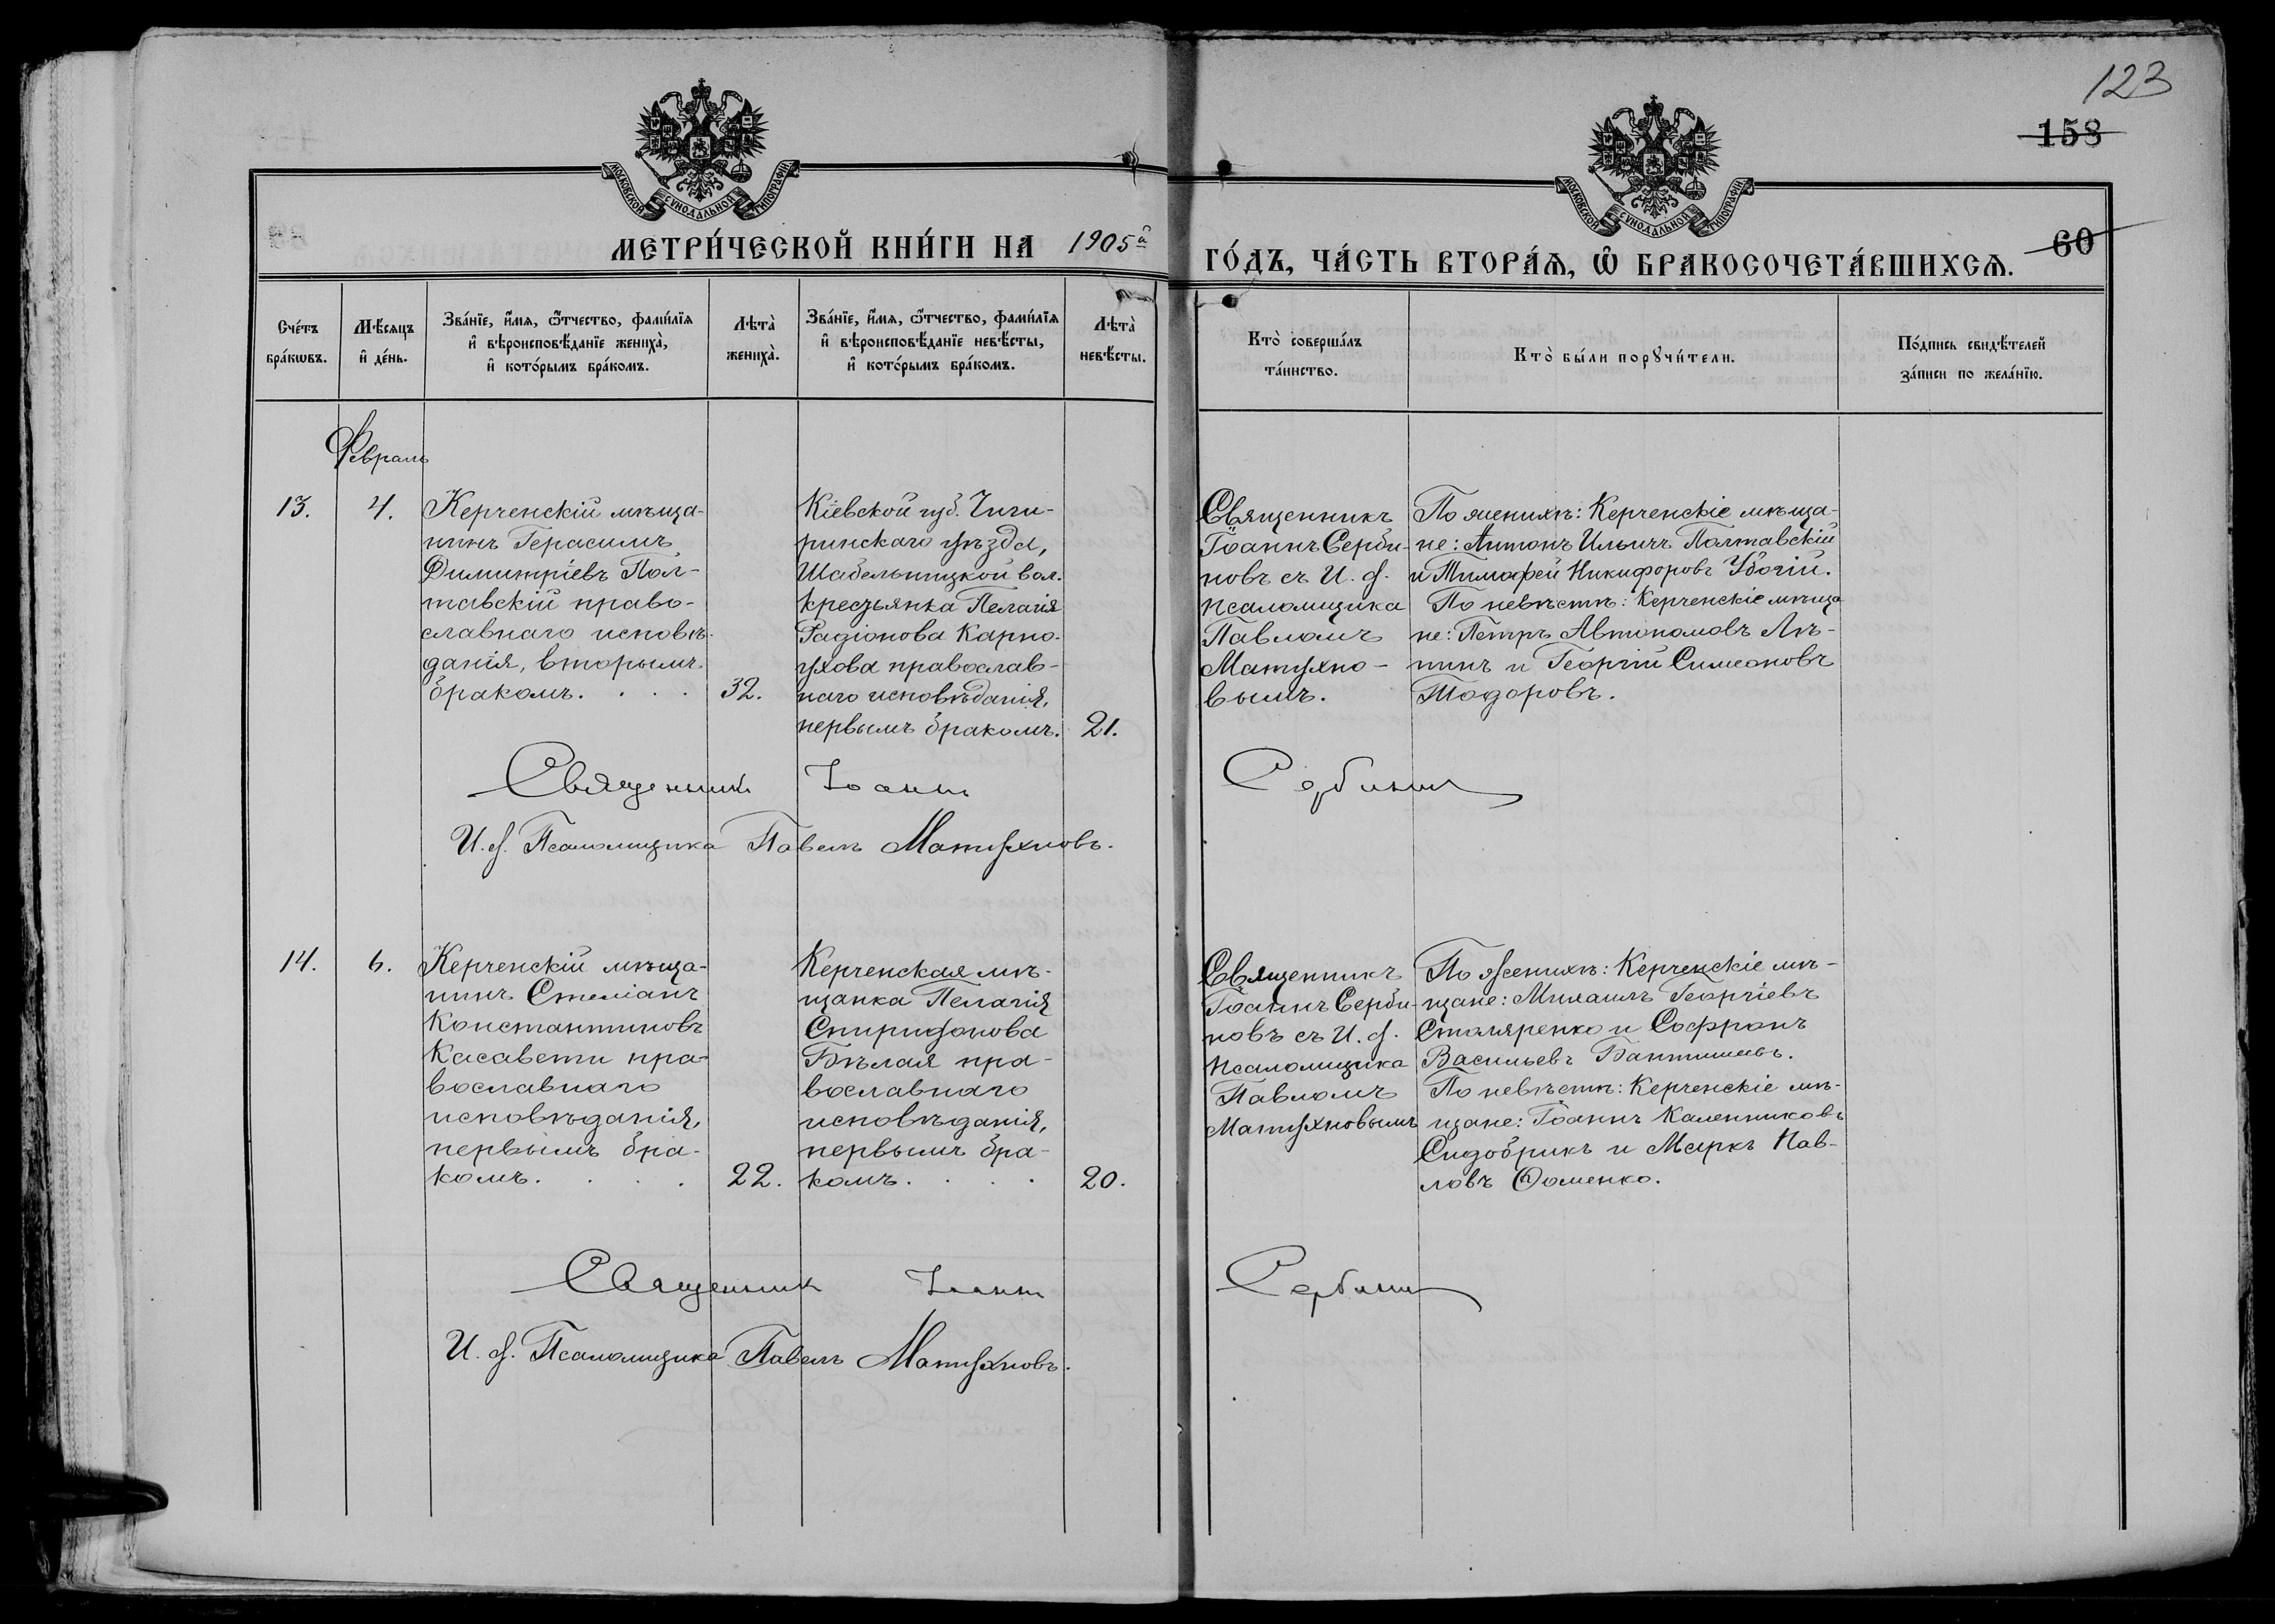 123
158
60
МОСКОВСКОЙ СѴНОДАЛЬНОЙ ТИПОГРАФІИ
МОСКОВСКОЙ СѴНОДАЛЬНОЙ ТИПОГРАФІИ
МЕТРИ́ЧЕСКОЙ КНИ́ГИ НА 1905й
ГО́ДЪ, ЧА́СТЬ ВТОРА́Ѧ, Ѽ БРАКОСОЧЕТА́ВШИХСѦ.
Сче́тъ
бра́кѡвъ.
Мѣ́сяцъ
и҆ де́нь.
Зва́нїе, и҆́мя, ѻ҆́тчество, фами́лїя
и҆ вѣроисповѣ́данїе жениха̀,
и҆ кото́рымъ бра́комъ.
Лѣта̀
жениха̀.
Зва́нїе, и҆́мя, ѻ҆́тчество, фами́лїя
и҆ вѣроисповѣ́данїе невѣ́сты,
и҆ кото́рымъ бра́комъ.
Лѣта̀
невѣ́сты.
Кто̀ соверша́лъ
та́инство.
Кто̀ бы́ли порꙋчи́тели.
По́дпись свидѣ́телей
за́писи по жела́нїю.
Февраль
13.
4.
Керченскій мѣща-
нинъ Герасимъ
Димитріевъ Пол-
тавскій право-
славнаго исповѣ-
данія, вторымъ
бракомъ. . . .
32.
Кіевской губ. Чиги-
ринскаго уѣзда,
Шабельницкой вол.
крестьянка Пелагія
Радіонова Карпо-
ухова православ-
наго исповѣданія,
первымъ бракомъ.
21.
Священникъ
Іоаннъ Серби-
новъ съ И. д.
псаломщика
Павломъ
Матухно-
вымъ.
По женихѣ: Керченскіе мѣща-
не: Антонъ Ильичъ Полтавскій
и Тимофей Никифоровъ Убогій.
По невѣстѣ: Керченскіе мѣща
не: Петръ Автономовъ Лѣ-
нинъ и Георгій Симеоновъ
Тодоровъ.
Священникъ Іоаннъ Сербиновъ
И. д. Псаломщика Павелъ Матухновъ.
14.
6.
Керченскій мѣща-
нинъ Стеліанъ
Константиновъ
Касавети пра-
вославнаго
исповѣданія,
первымъ бра-
комъ. . . .
22.
Керченская мѣ-
щанка Пелагія
Спиридонова
Бѣлая пра-
вославнаго
исповѣданія,
первымъ бра-
комъ. . . .
20.
Священникъ
Іоаннъ Серби-
новъ съ И. д.
псаломщика
Павломъ
Матухновымъ
По женихѣ: Керченскіе мѣ-
щане: Михаилъ Георгіевъ
Столяренко и Софронъ
Васильевъ Бантишевъ.
По невѣстѣ: Керченскіе мѣ-
щане: Іоаннъ Каленниковъ
Сидобрикъ и Маркъ Пав-
ловъ Ѳоменко.
Священникъ Іоаннъ Сербиновъ
И. д. Псаломщика Павелъ Матухновъ.